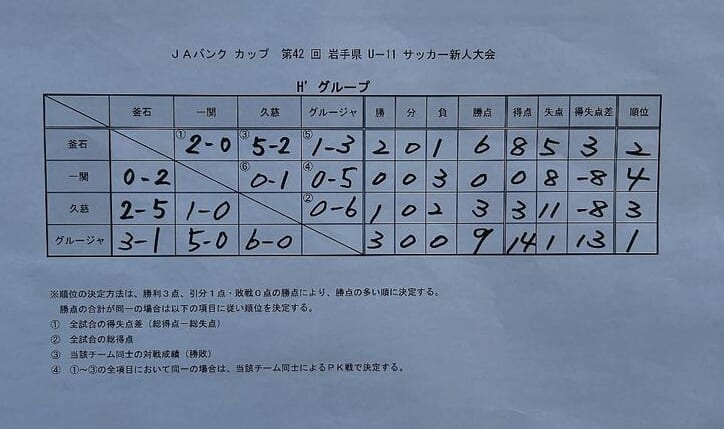 JAバンク カップ 第42 回 岩手県 U－11 サッカー新人大会
H' グループ
釜石 一関 久慈 グルージャ 勝 分 負 勝点 得点 失点 得失点差 順位
釜石 ① 2-0 ③ 5-2 ⑤ 1-3 2 0 1 6 8 5 3 2
一関 0-2 ⑥ 0-1 ④ 0-5 0 0 3 0 0 8 -8 4
久慈 2-5 1-0 ② 0-6 1 0 2 3 3 11 -8 3
グルージャ 3-1 5-0 6-0 3 0 0 9 14 1 13 1
※順位の決定方法は、勝利３点、引分１点・敗戦０点の勝点により、勝点の多い順に決定する。
勝点の合計が同一の場合は以下の項目に従い順位を決定する。
① 全試合の得失点差（総得点－総失点）
② 全試合の総得点
③ 当該チーム同士の対戦成績（勝敗）
④ ①～③の全項目において同一の場合は、当該チーム同士によるＰＫ戦で決定する。